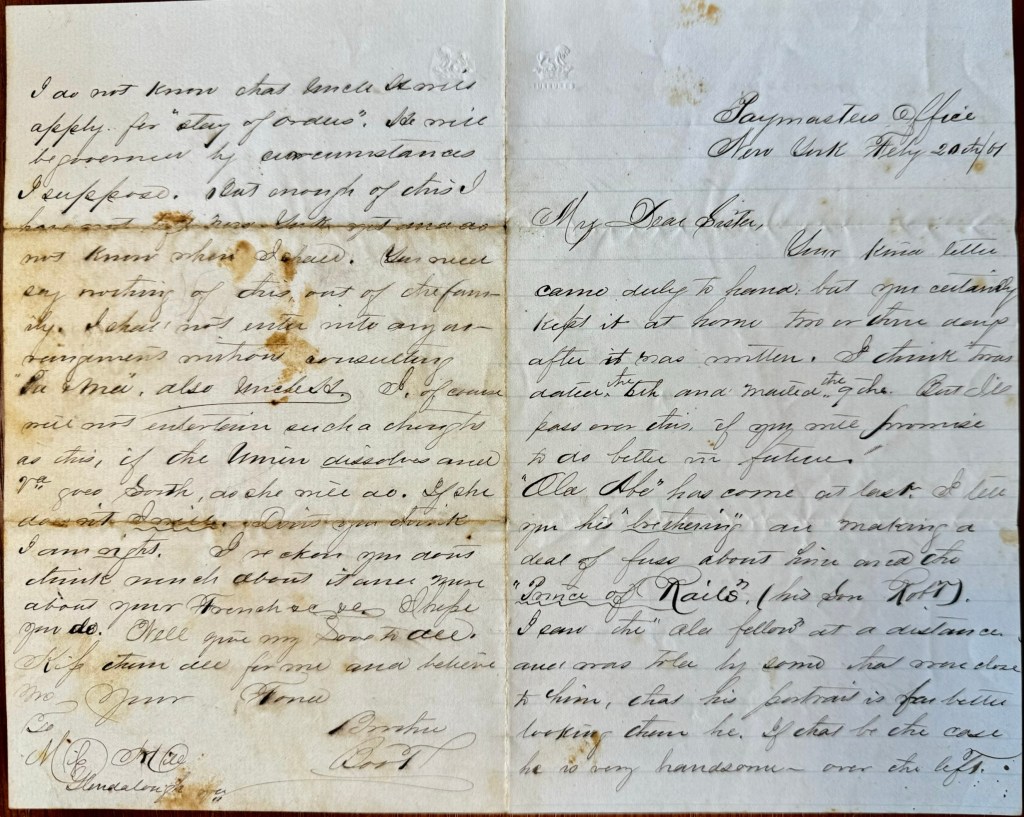 Paymasters Office
New York Feby 20th/61
My Dear Sister,
Your kind letter
came duly to hand: but you certainly
kept it at home two or three days
after it was written. I think twas
dated the 6th and mailed the 9th. But I'll
pass over this, if you will promise
to do better in future.
"Old Abe" has come at last. I tell
you his "brethering" are making a
deal of fuss about him and the
"Prince of Rails", (his son Robt).
I saw the "old fellow" at a distance
and was told by some that were close
to him, that his portrait is far better
looking than he. If that be the case
he is very handsome – over the left.
I do not know that Uncle A will
apply for "stay of orders". He will
be governed by circumstances
I suppose. But enough of this I
have not left New York yet and do
not know when I shall. You need
say nothing of this, out of the fam-
ily. I shall not enter into any ar-
rangements without consulting
"Pa & Ma", also Uncle A. I, of course
will not entertain such a thought
as this, if the Union dissolves and
Va goes South, as she will do. If she
don't I will. Don't you think
I am right. I reckon you don't
think much about it and more
about your French &c &c. I hope
you do. Well give my Love to all.
Kiss them all for me and believe
me Your Fond
Brother
To
Glendalough Va